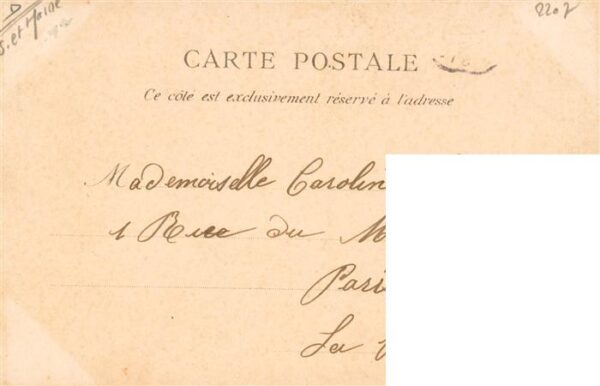 S. et Marne
2207
CARTE POSTALE
Ce côté est exclusivement réservé à l'adresse
Mademoiselle Carolin
1 Rue du M
Pari
La